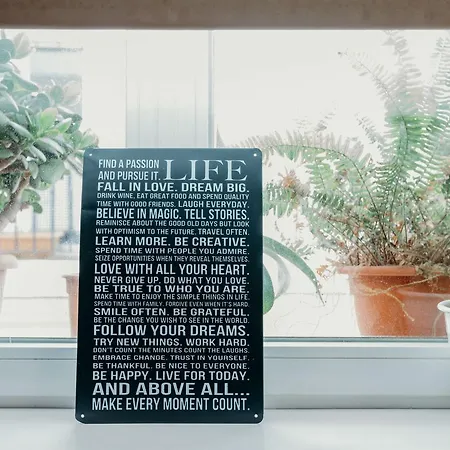 FIND A PASSION
AND PURSUE IT. LIFE
FALL IN LOVE. DREAM BIG.
DRINK WINE, EAT GREAT FOOD AND SPEND QUALITY
TIME WITH GOOD FRIENDS. LAUGH EVERYDAY.
BELIEVE IN MAGIC. TELL STORIES.
REMINISCE ABOUT THE GOOD OLD DAYS BUT LOOK
WITH OPTIMISM TO THE FUTURE. TRAVEL OFTEN.
LEARN MORE. BE CREATIVE.
SPEND TIME WITH PEOPLE YOU ADMIRE.
SEIZE OPPORTUNITIES WHEN THEY REVEAL THEMSELVES.
LOVE WITH ALL YOUR HEART.
NEVER GIVE UP. DO WHAT YOU LOVE.
BE TRUE TO WHO YOU ARE.
MAKE TIME TO ENJOY THE SIMPLE THINGS IN LIFE.
SPEND TIME WITH FAMILY. FORGIVE EVEN WHEN IT'S HARD.
SMILE OFTEN. BE GRATEFUL.
BE THE CHANGE YOU WISH TO SEE IN THE WORLD.
FOLLOW YOUR DREAMS.
TRY NEW THINGS. WORK HARD.
DON'T COUNT THE MINUTES COUNT THE LAUGHS.
EMBRACE CHANGE. TRUST IN YOURSELF.
BE THANKFUL. BE NICE TO EVERYONE.
BE HAPPY. LIVE FOR TODAY.
AND ABOVE ALL...
MAKE EVERY MOMENT COUNT.